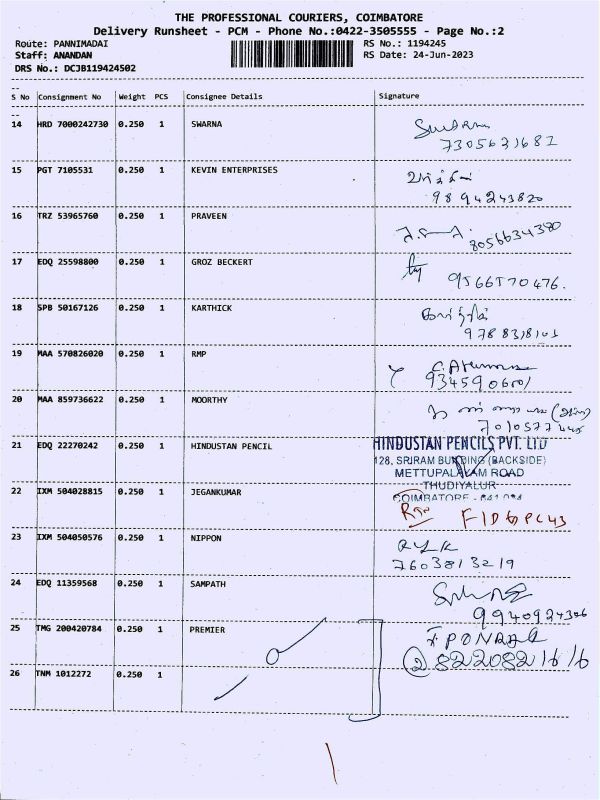 THE PROFESSIONAL COURIERS, COIMBATORE
Delivery Runsheet - PCM - Phone No.:0422-3505555 - Page No.:2
Route: PANNIMADAI RS No.: 1194245
Staff: ANANDAN RS Date: 24-Jun-2023
DRS No.: DCJB119424502
S No Consignment No Weight PCS Consignee Details Signature
14 HRD 7000242730 0.250 1 SWARNA
7305631682
15 PGT 7105531 0.250 1 KEVIN ENTERPRISES
9894243820
16 TRZ 53965760 0.250 1 PRAVEEN
8056634380
17 EDQ 25598800 0.250 1 GROZ BECKERT
9566570476.
18 SPB 50167126 0.250 1 KARTHICK
கார்த்திக்
19 MAA 570826020 0.250 1 RMP
20 MAA 859736622 0.250 1 MOORTHY
21 EDQ 22270242 0.250 1 HINDUSTAN PENCIL HINDUSTAN PENCILS PVT. LTD
128, SRIRAM BUILDING (BACKSIDE)
METTUPALAYAM ROAD
THUDIYALUR
22 IXM 504028815 0.250 1 JEGANKUMAR COIMBATORE - 641 034
23 IXM 504050576 0.250 1 NIPPON
7603813219
24 EDQ 11359568 0.250 1 SAMPATH
9940924306
25 TMG 200420784 0.250 1 PREMIER
2 822082 16 16
26 TNM 1012272 0.250 1